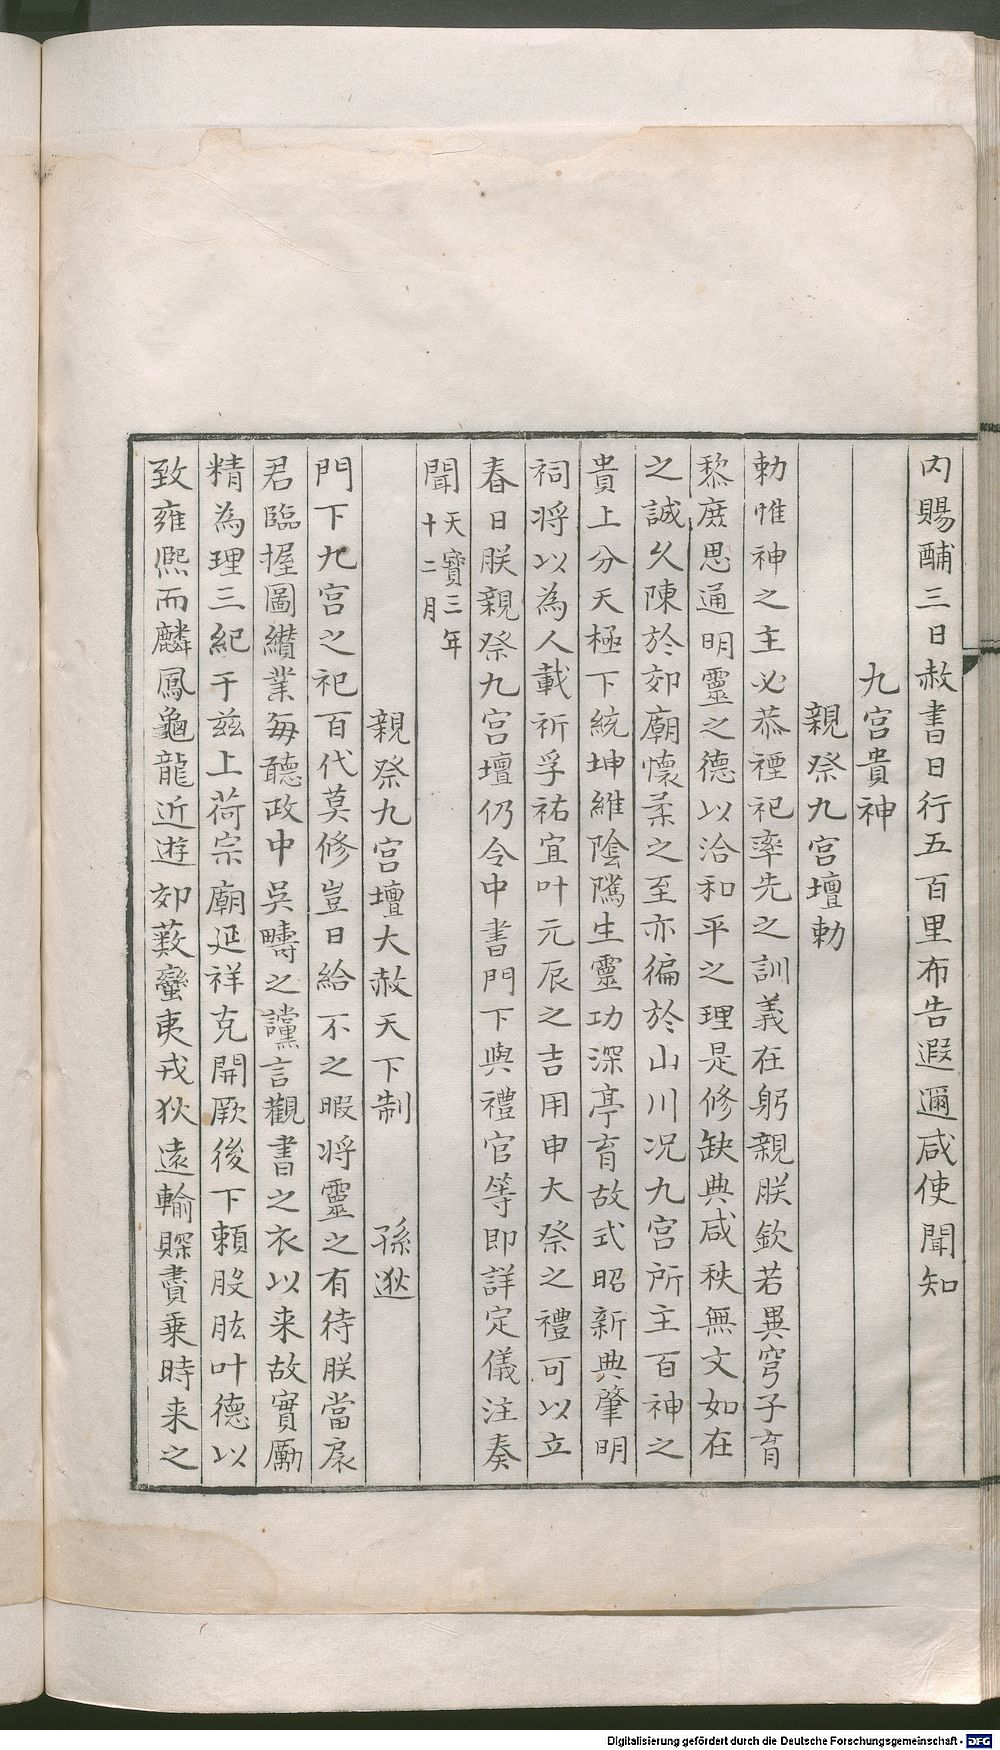 内賜酺三日赦書日行五百里布告遐邇咸使聞知
九宮貴神
親祭九宮壇勅
勅惟神之主必恭禋祀率先之訓義在躬親朕欽若異穹子育
黎庶思通明靈之德以洽和平之理是修缺典咸秩無文如在
之誠久陳於郊廟懷柔之至亦徧於山川况九宮所主百神之
貴上分天極下統坤維陰隲生靈功深亭育故式昭新典肇明
祠将以為人載祈孚祐宜叶元辰之吉用申大祭之禮可以立
春日朕親祭九宮壇仍令中書門下與禮官等即詳定儀注奏
聞天寳三年十二月
親祭九宮壇大赦天下制 孫逖
門下九宮之祀百代莫修豈日給不之暇将靈之有待朕當扆
君臨握圖纘業每聽政中吳疇之讜言觀書之衣以来故實勵
精為理三紀于兹上荷宗廟延祥克開厥後下頼股肱叶德以
致雍熈而麟鳳龜龍近遊郊薮蠻夷戎狄遠輸賝賮乗時来之
Digitalisierung gefördert durch die Deutsche Forschungsgemeinschaft - DFG